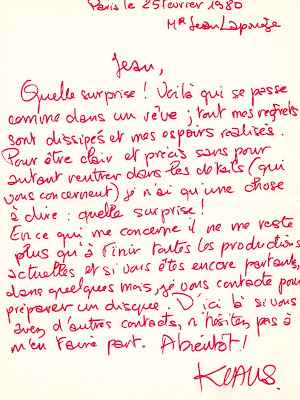 Paris le 25 février 1980
Mr Jean Lapouge
Jean,
Quelle surprise ! Voilà qui se passe
comme dans un rêve ; tout mes regrets
sont dissipés et mes espoirs realisés.
Pour être clair et précis sans pour
autant rentrer dans les détails (qui
vous concernent) je n'ai qu'une chose
à dire : quelle surprise !
En ce qui me concerne il ne me reste
plus qu'à finir toutes les productions
actuelles et si vous êtes encore partants,
dans quelques mois, je vous contacte pour
préparer un disque. D'ici là si vous
avez d'autres contacts, n'hésitez pas à
m'en faire part. A bientôt !
KLAUS.